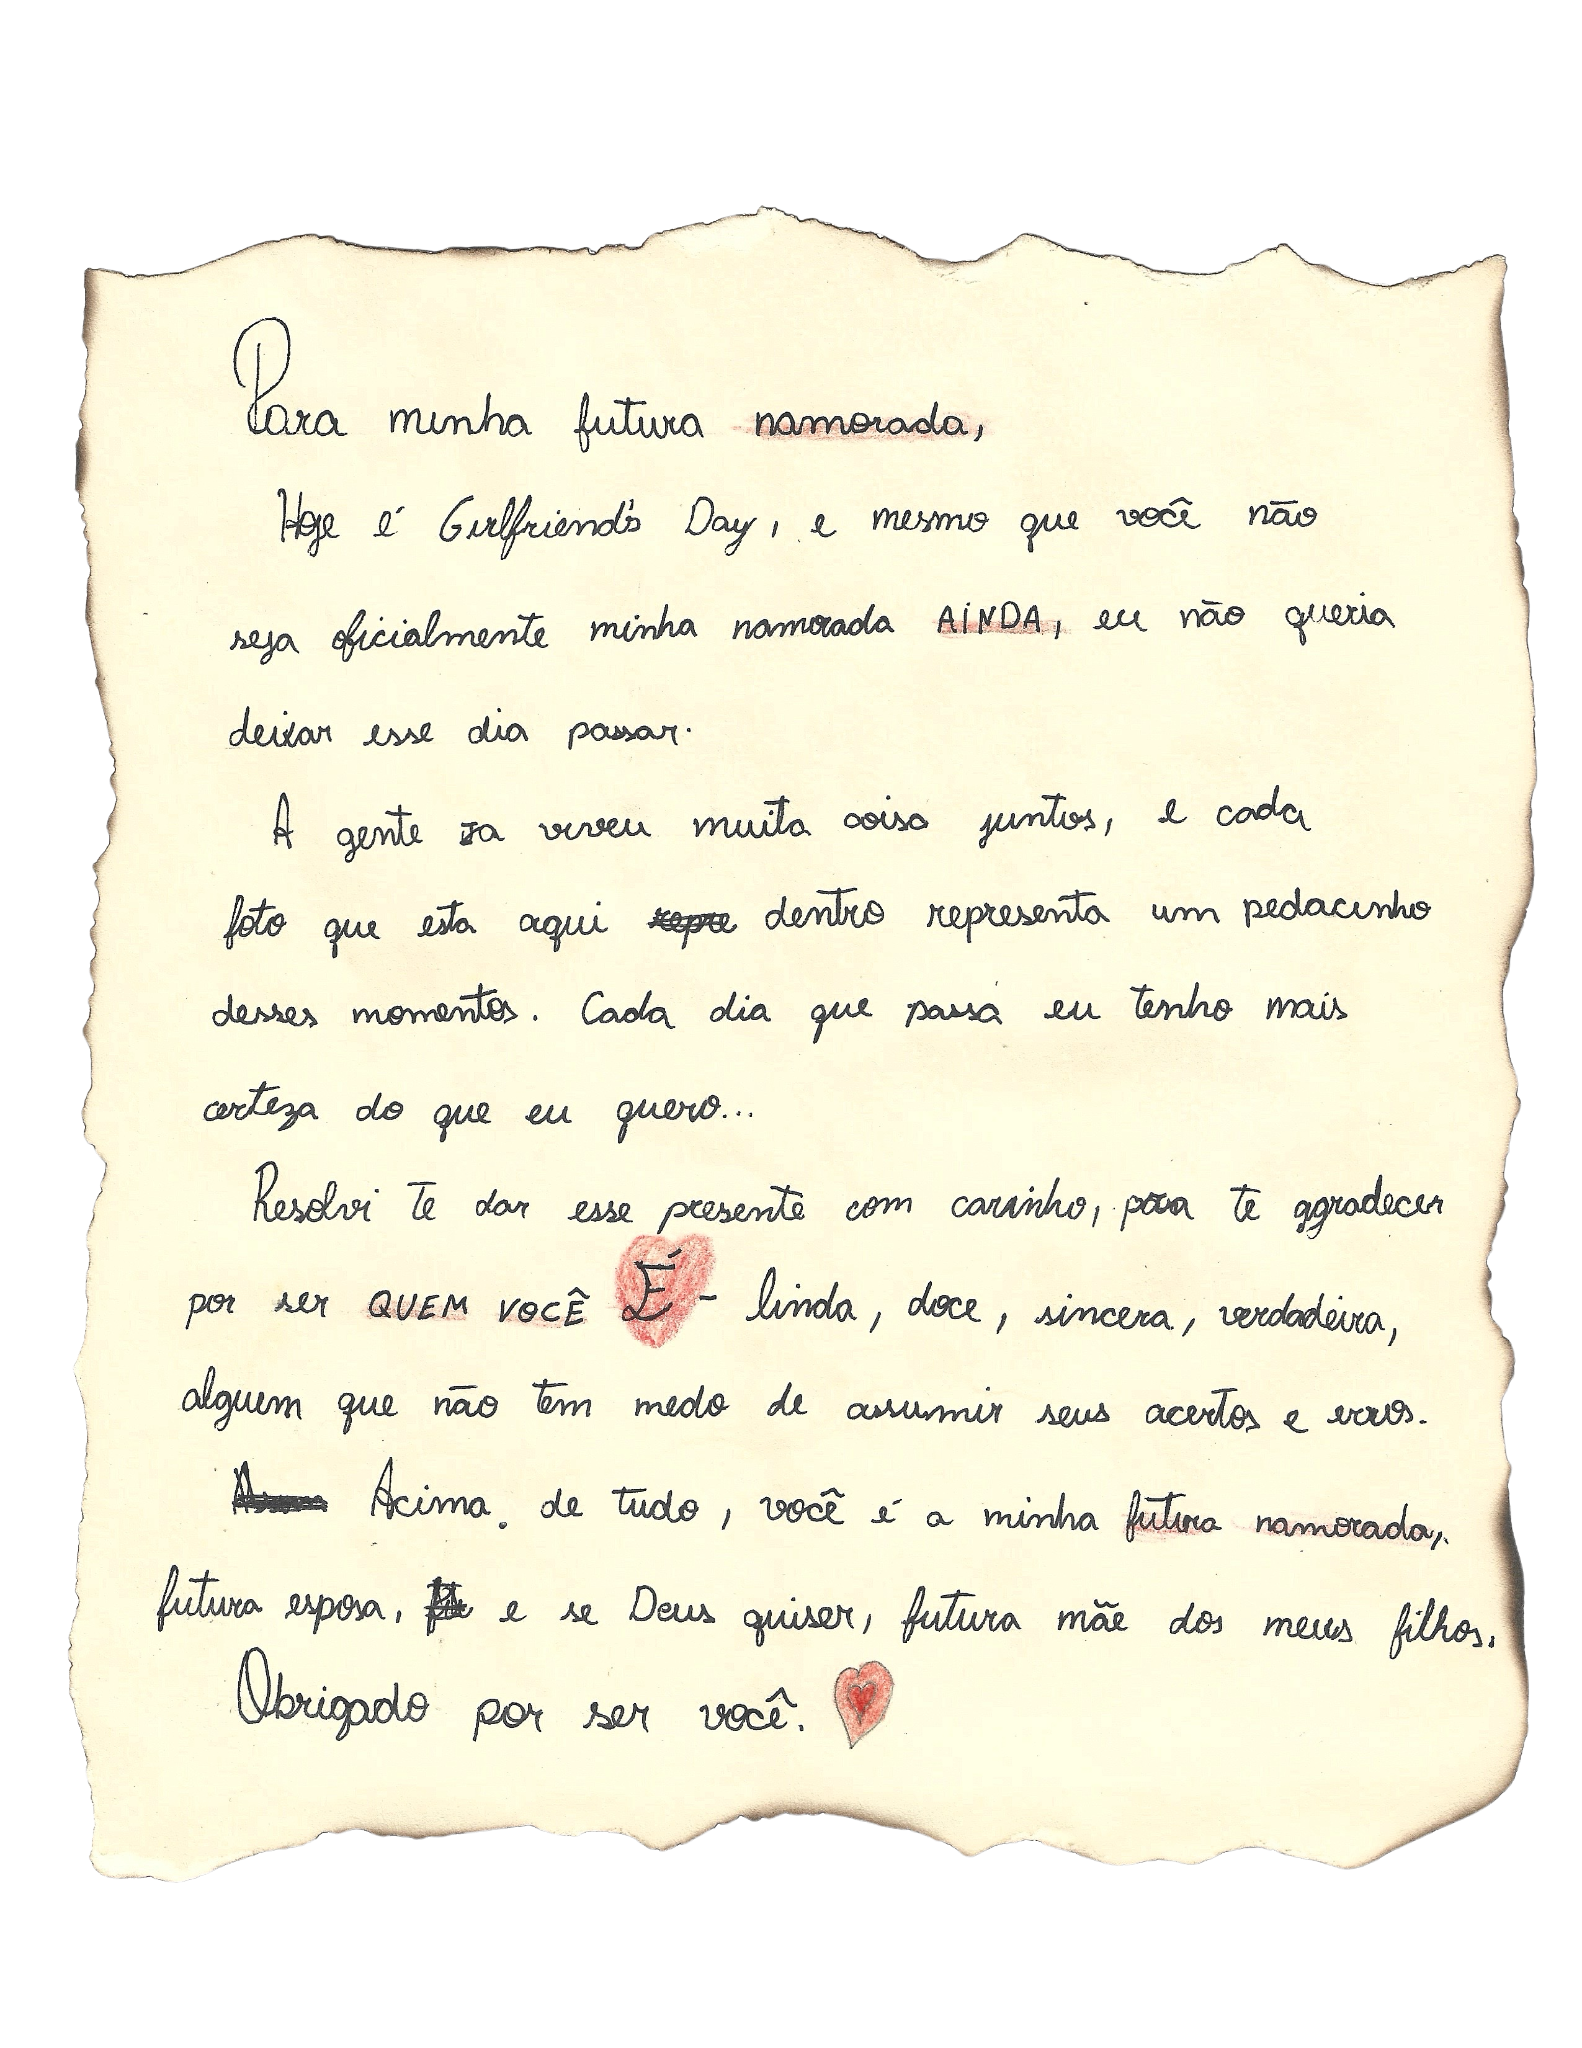 Para minha futura namorada,
Hoje é Girlfriend's Day, e mesmo que você não
seja oficialmente minha namorada AINDA, eu não queria
deixar esse dia passar.
A gente ja viveu muita coisa juntos, e cada
foto que esta aqui dentro representa um pedacinho
desses momentos. Cada dia que passa eu tenho mais
certeza do que eu quero...
Resolvi te dar esse presente com carinho, para te agradecer
por ser QUEM VOCÊ É - linda, doce, sincera, verdadeira,
alguem que não tem medo de assumir seus acertos e erros.
Acima de tudo, você é a minha futura namorada,
futura esposa, e se Deus quiser, futura mãe dos meus filhos.
Obrigado por ser você.